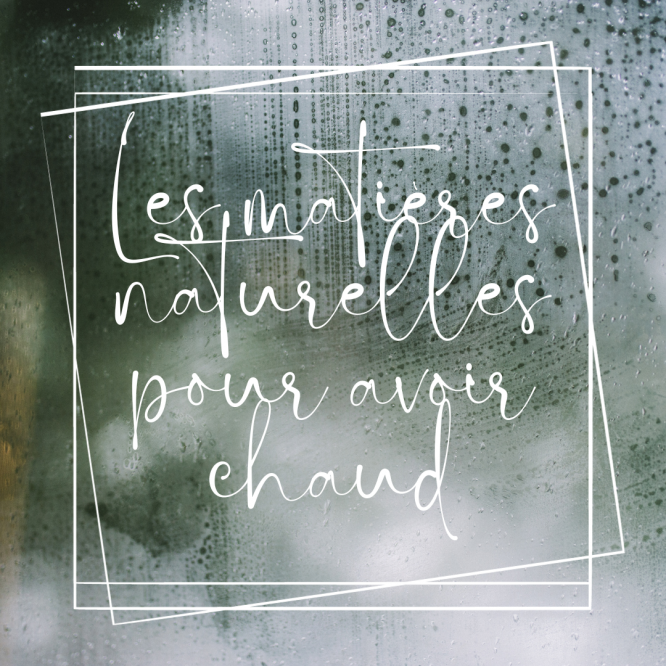 Les matières
naturelles
pour avoir
chaud